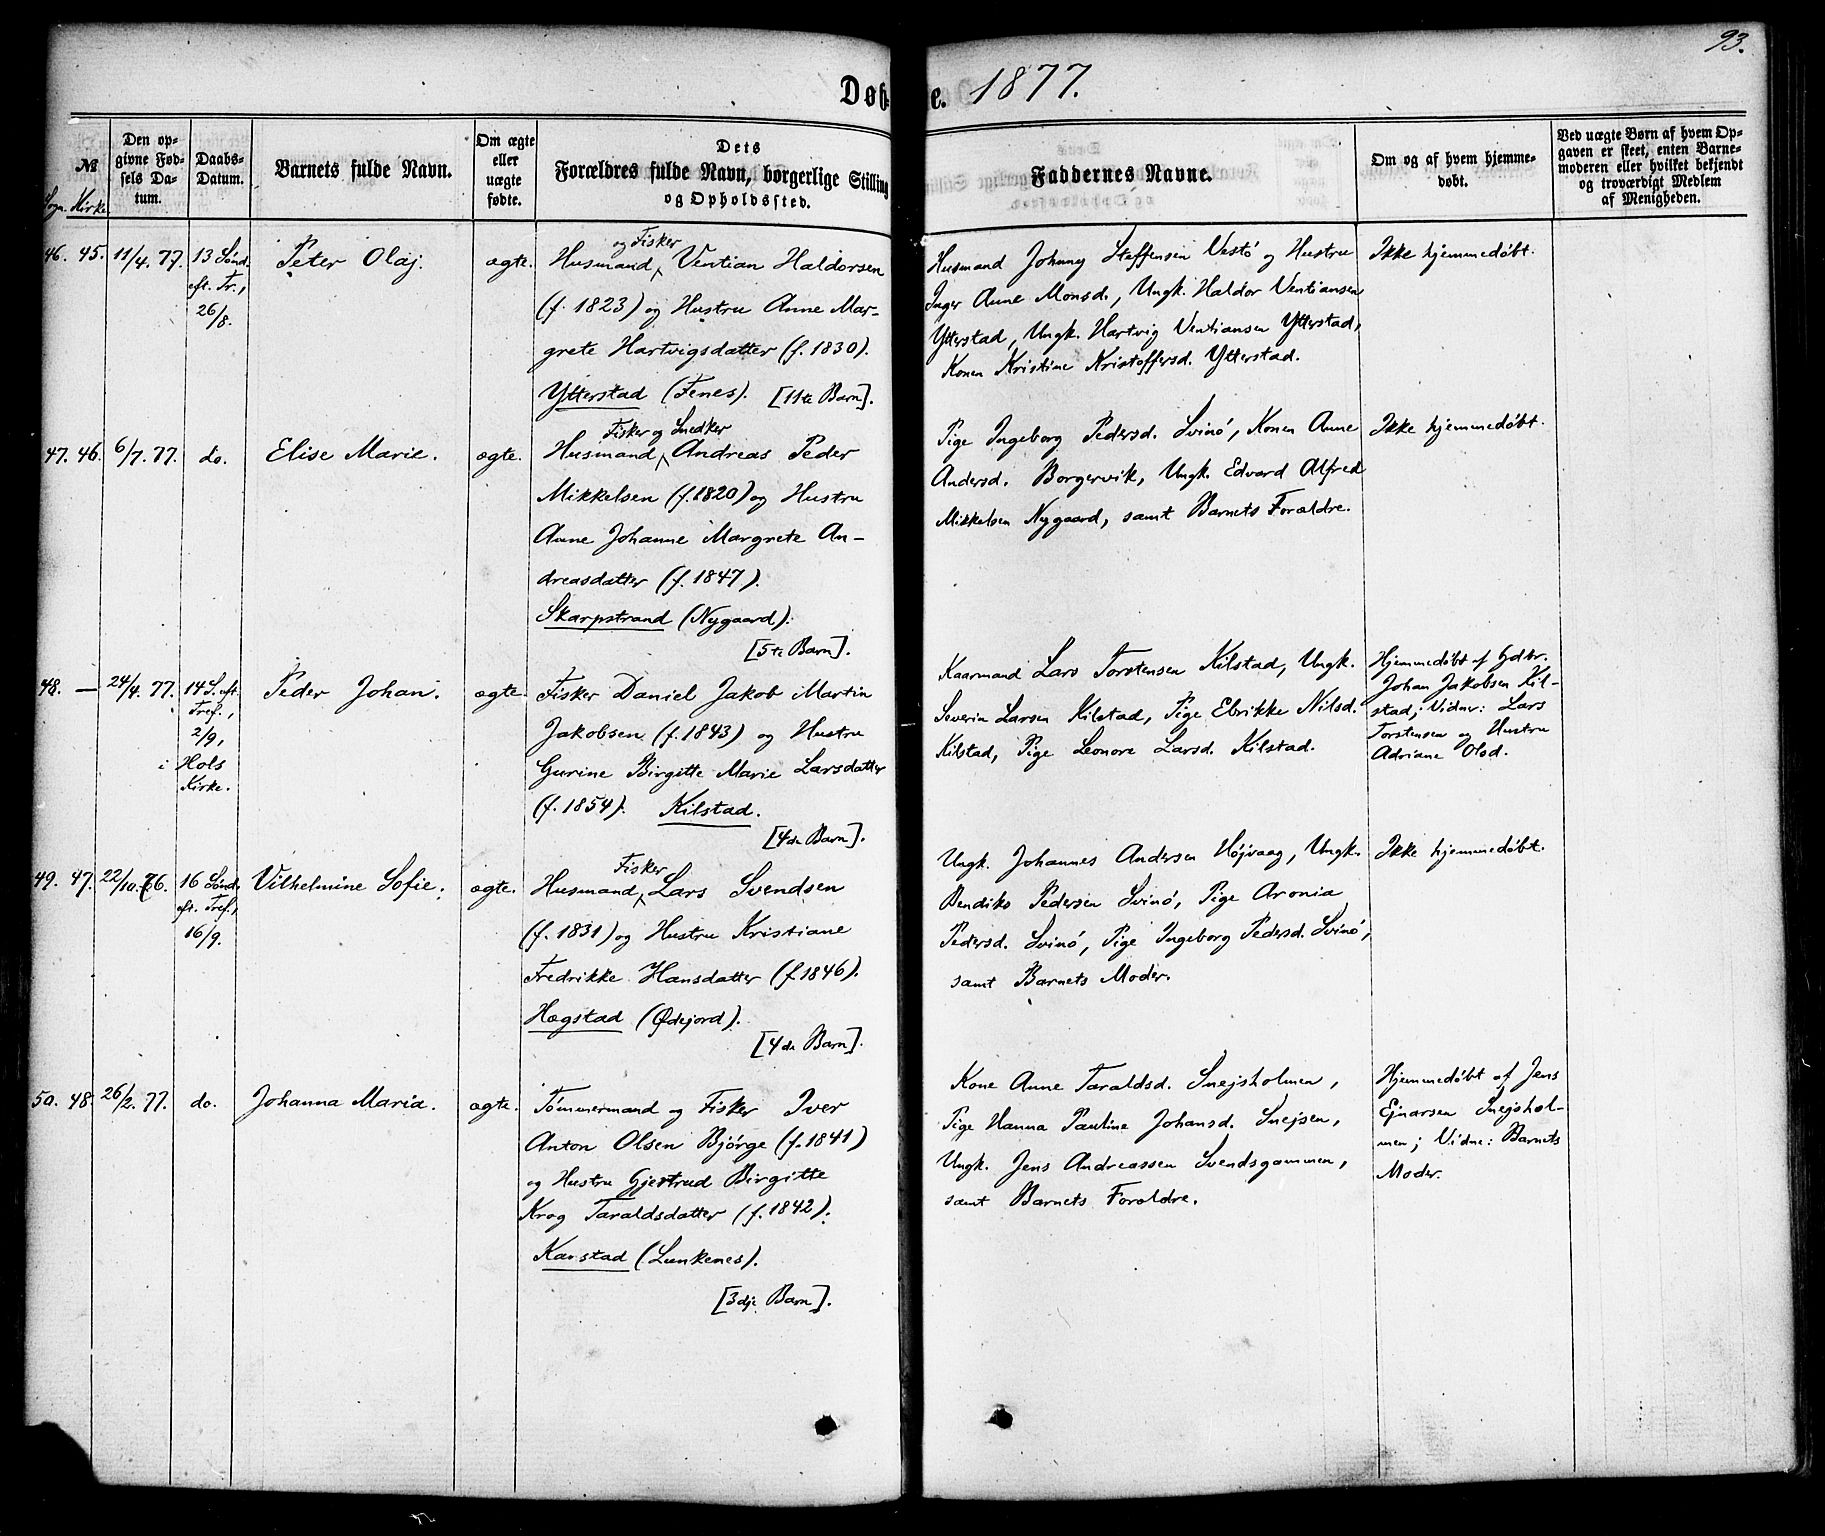 93.
Døbte. 1877.
№
Sogn. Kirke.
Den op-
givne Fød-
sels Da-
tum.
Daabs-
Datum.
Barnets fulde Navn.
Om ægte
eller
uægte
fødte.
Dets
Forældres fulde Navn, borgerlige Stilling
og Opholdssted.
Faddernes Navne.
Om og af hvem hjemme-
døbt.
Ved uægte Børn af hvem Op-
gaven er skeet, enten Barne-
moderen eller hvilket bekjendt
og troværdigt Medlem
af Menigheden.
46. 45. 11/4. 77.
13 Sönd.
eft. Tr.,
26/8.
Peter Olaj.
ægte.
og Fisker
Husmand Ventian Haldorsen
(f. 1823) og Hustru Anne Mar-
grete Hartvigsdatter (f. 1830).
Ytterstad (Fenes). [11te Barn].
Husmand Johnny Steffensen Vestö og Hustru
Inger Anne Monsd., Ungk. Haldor Ventiansen
Ytterstad, Ungk. Hartvig Ventiansen Ytterstad,
Konen Kristine Kristoffersd. Ytterstad.
Ikke hjemmedöbt.
47. 46. 6/7. 77.
do.
Elise Marie.
ægte.
Fisker og Snedker
Husmand Andreas Peder
Mikkelsen (f. 1820) og Hustru
Anne Johanne Margrete An-
dreasdatter (f. 1847).
Skarpstrand (Nygaard).
[5te Barn].
Pige Ingeborg Pedersd. Svinö, Konen Anne
Andersd. Borgervik, Ungk. Edvard Alfred
Mikkelsen Nygaard, samt Barnets Forældre.
Ikke hjemmedöbt.
48. — 24/4. 77.
14 S. eft.
Tref.,
2/9,
i Hols
Kirke.
Peder Johan.
ægte.
Fisker Daniel Jakob Martin
Jakobsen (f. 1843) og Hustru
Gurine Birgitte Marie Larsdatter
(f. 1854). Kilstad.
[4de Barn].
Kaarmand Lars Torstensen Kilstad, Ungk.
Severin Larsen Kilstad, Pige Ebrikke Nilsd.
Kilstad, Pige Leonore Larsd. Kilstad.
Hjemmedöbt af Gdbr.
Johan Jakobsen Kil-
stad; Vidner: Lars
Torstensen og Hustru
Adriane Olsd.
49. 47. 22/10. 76.
16 Sönd.
eft. Tref.,
16/9.
Vilhelmine Sofie.
ægte.
Fisker
Husmand Lars Svendsen
(f. 1831) og Hustru Kristiane
Fredrikke Hansdatter (f. 1846).
Hægstad (Ødejord).
[4de Barn].
Ungk. Johannes Andersen Höjvaag, Ungk.
Bendiks Pedersen Svinö, Pige Aronia
Pedersd. Svinö, Pige Ingeborg Pedersd. Svinö,
samt Barnets Moder.
Ikke hjemmedöbt.
50. 48. 26/2. 77.
do.
Johanna Maria.
ægte.
Tömmermand og Fisker Iver
Anton Olsen Björge (f. 1841)
og Hustru Gjertrud Birgitte
Krog Taraldsdatter (f. 1842).
Karstad (Lunkenes).
[3dje Barn].
Kone Anne Taraldsd. Snejsholmen,
Pige Hanna Pauline Johansd. Snejsen,
Ungk. Jens Andreassen Svendsgammen,
samt Barnets Forældre.
Hjemmedöbt af Jens
Ejnarsen Snejshol-
men; Vidne: Barnets
Moder.